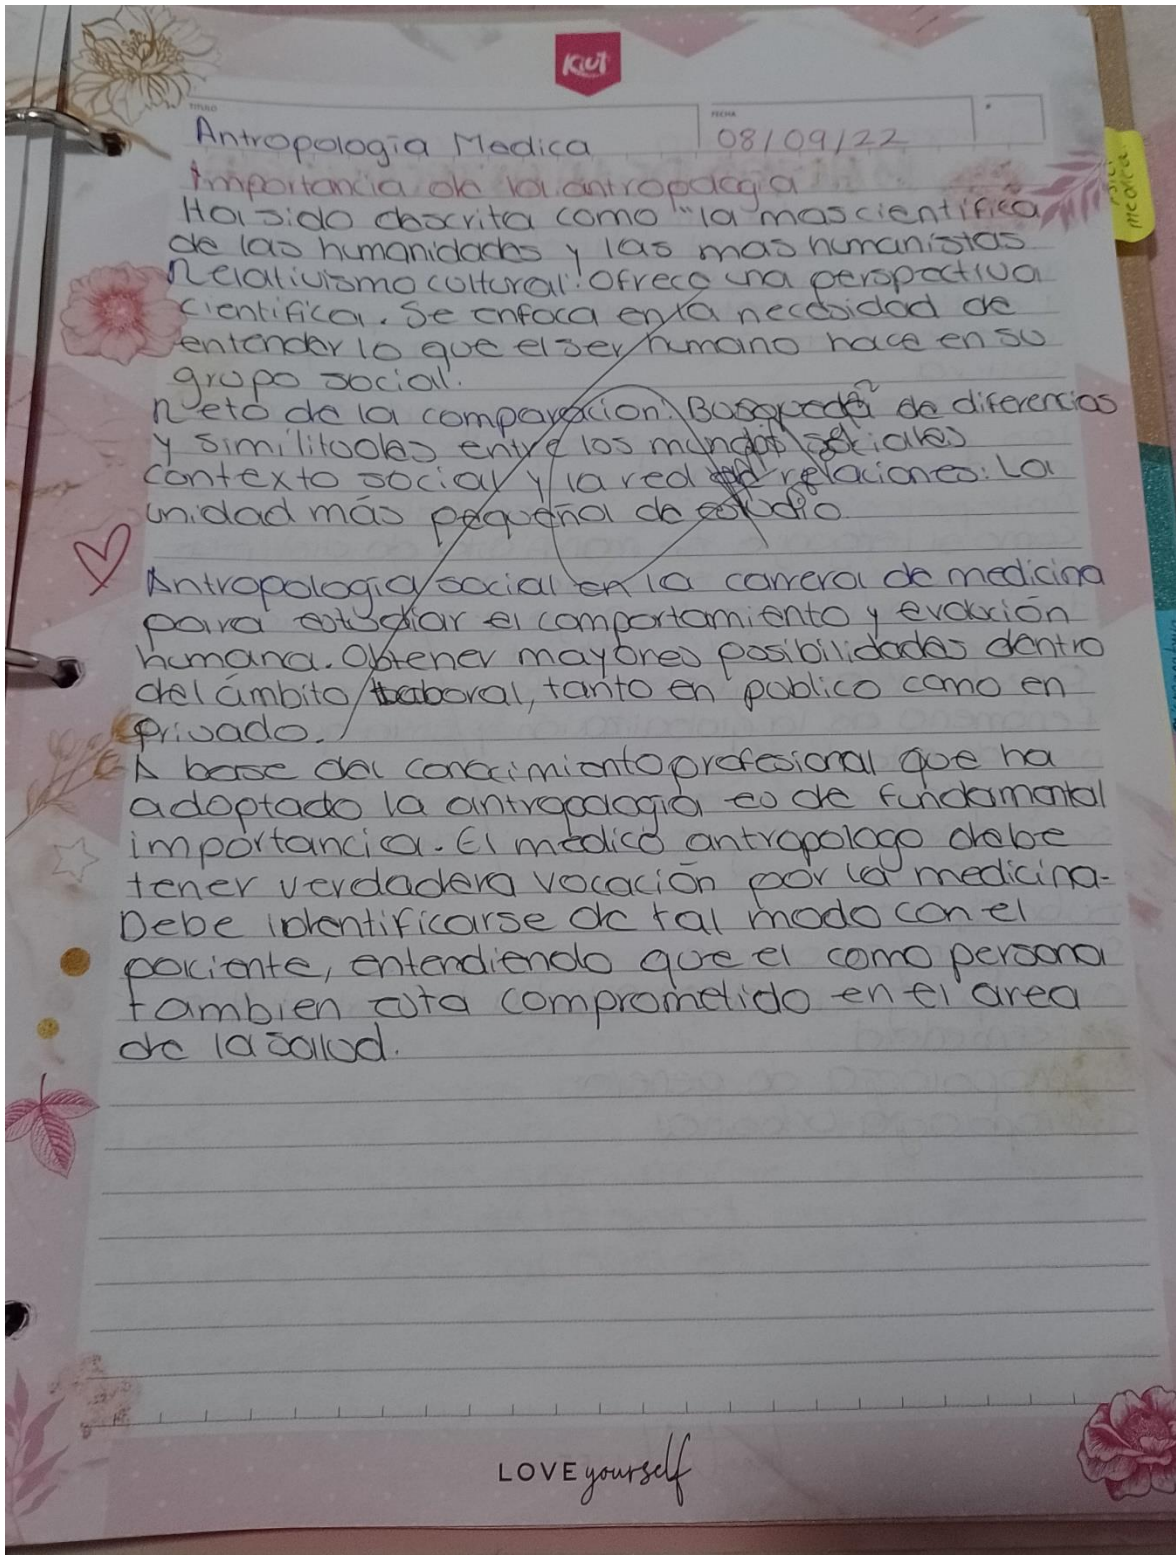 Kiut
TITULO
FECHA
Antropología Medica
08/09/22
Importancia de la antropología
Ha sido descrita como "la mas cientifica
de las humanidades y las mas humanistas
Relativismo cultural: Ofrece una perspectiva
cientifica. Se enfoca en la necesidad de
entender lo que el ser humano hace en su
grupo social.
Reto de la comparacion: Busqueda de diferencias
y similitudes entre los mundos sociales
contexto social y la red de relaciones: La
unidad más pequeña de estudio
Antropología social en la carrera de medicina
para estudiar el comportamiento y evolución
humana. Obtener mayores posibilidades dentro
del ámbito laboral, tanto en publico como en
privado.
A base del conocimiento profesional que ha
adoptado la antropología es de fundamental
importancia. El medico antropologo debe
tener verdadera vocación por la medicina.
Debe identificarse de tal modo con el
paciente, entendiendo que el como persona
tambien esta comprometido en el area
de la salud.
LOVE yourself